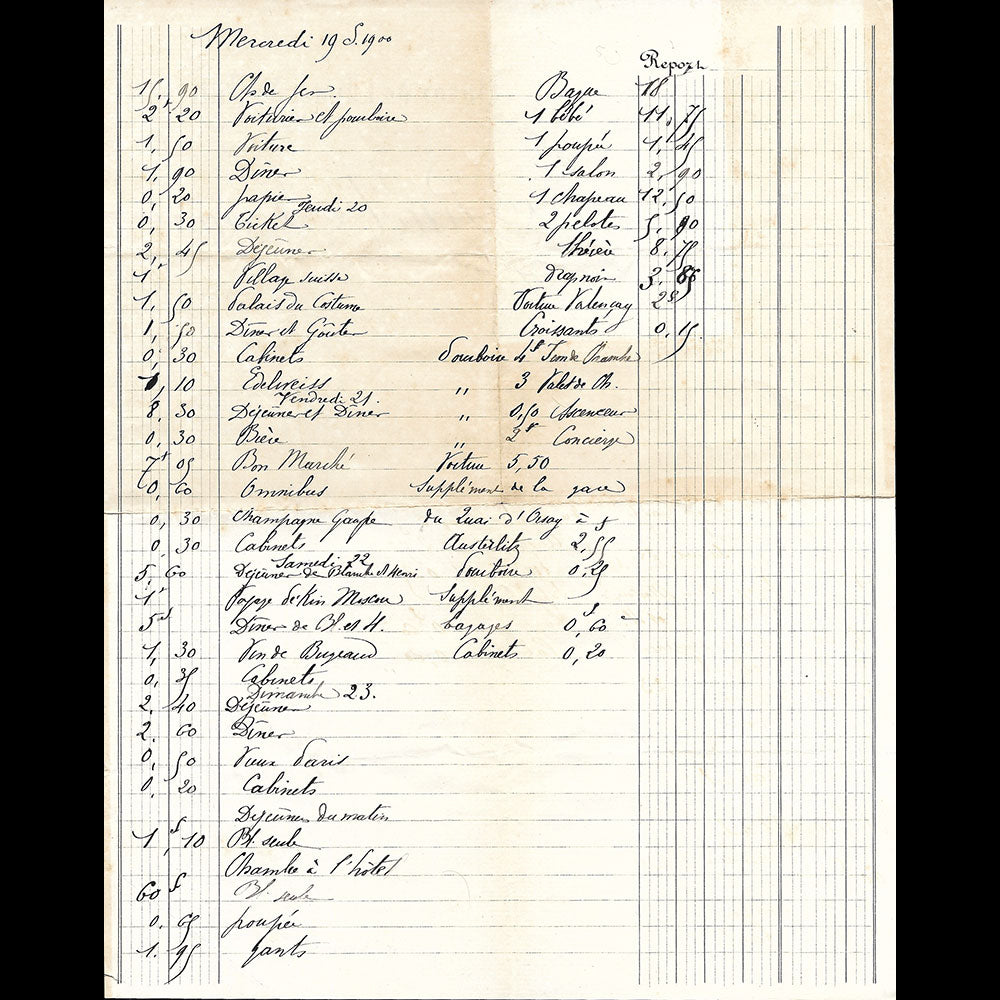 Mercredi 19 S. 1900
Report
15, 90 Ch de fer
2f 20 Voiturier et pourboire
1, 50 Voiture
1, 90 Dîner
0, 20 papier
Jeudi 20
0, 30 Ticket
2, 45 Déjeûner
1f Village suisse
1, 50 Palais du Costume
1, 50 Dîner et Goûter
0, 30 Cabinets
1, 10 Edelweiss
Vendredi 21.
8, 30 Déjeûner et Dîner
0, 30 Bière
7f 05 Bon Marché
0, 60 Omnibus
0, 30 Champagne
0, 30 Cabinets
Samedi 22
5, 60 Déjeûner de Blanche et Henri
1f Voyage Pékin Moscou
5f Dîner de Bl. et H.
1, 30 Vin de Bugeaud
0, 35 Cabinets
Dimanche 23.
2, 40 Déjeûner
2, 60 Dîner
0, 50 Vieux Paris
0, 20 Cabinets
Déjeûner du matin
1f, 10 Bl. seule
Chambre à l'hôtel
60 f Bl. seule
0, 65 poupée
1, 95 gants
Bague 18
1 bébé 11, 75
1 poupée 1, 45
1 salon 2, 90
1 chapeau 12, 50
2 pelotes 5, 90
théière 8, 75
drap noir 3,
Voiture Valençay 28
Croissants 0, 15
Pourboire 4f Fem de Chambre
" 3 Valet de Ch.
" 0,50 Ascenceur
" 2f Concierge
Voiture 5,50
Supplément de la gare
du Quai d'Orsay à
Austerlitz 2,55
Pourboire 0,25
Supplément
bagages 0,60
Cabinets 0,20